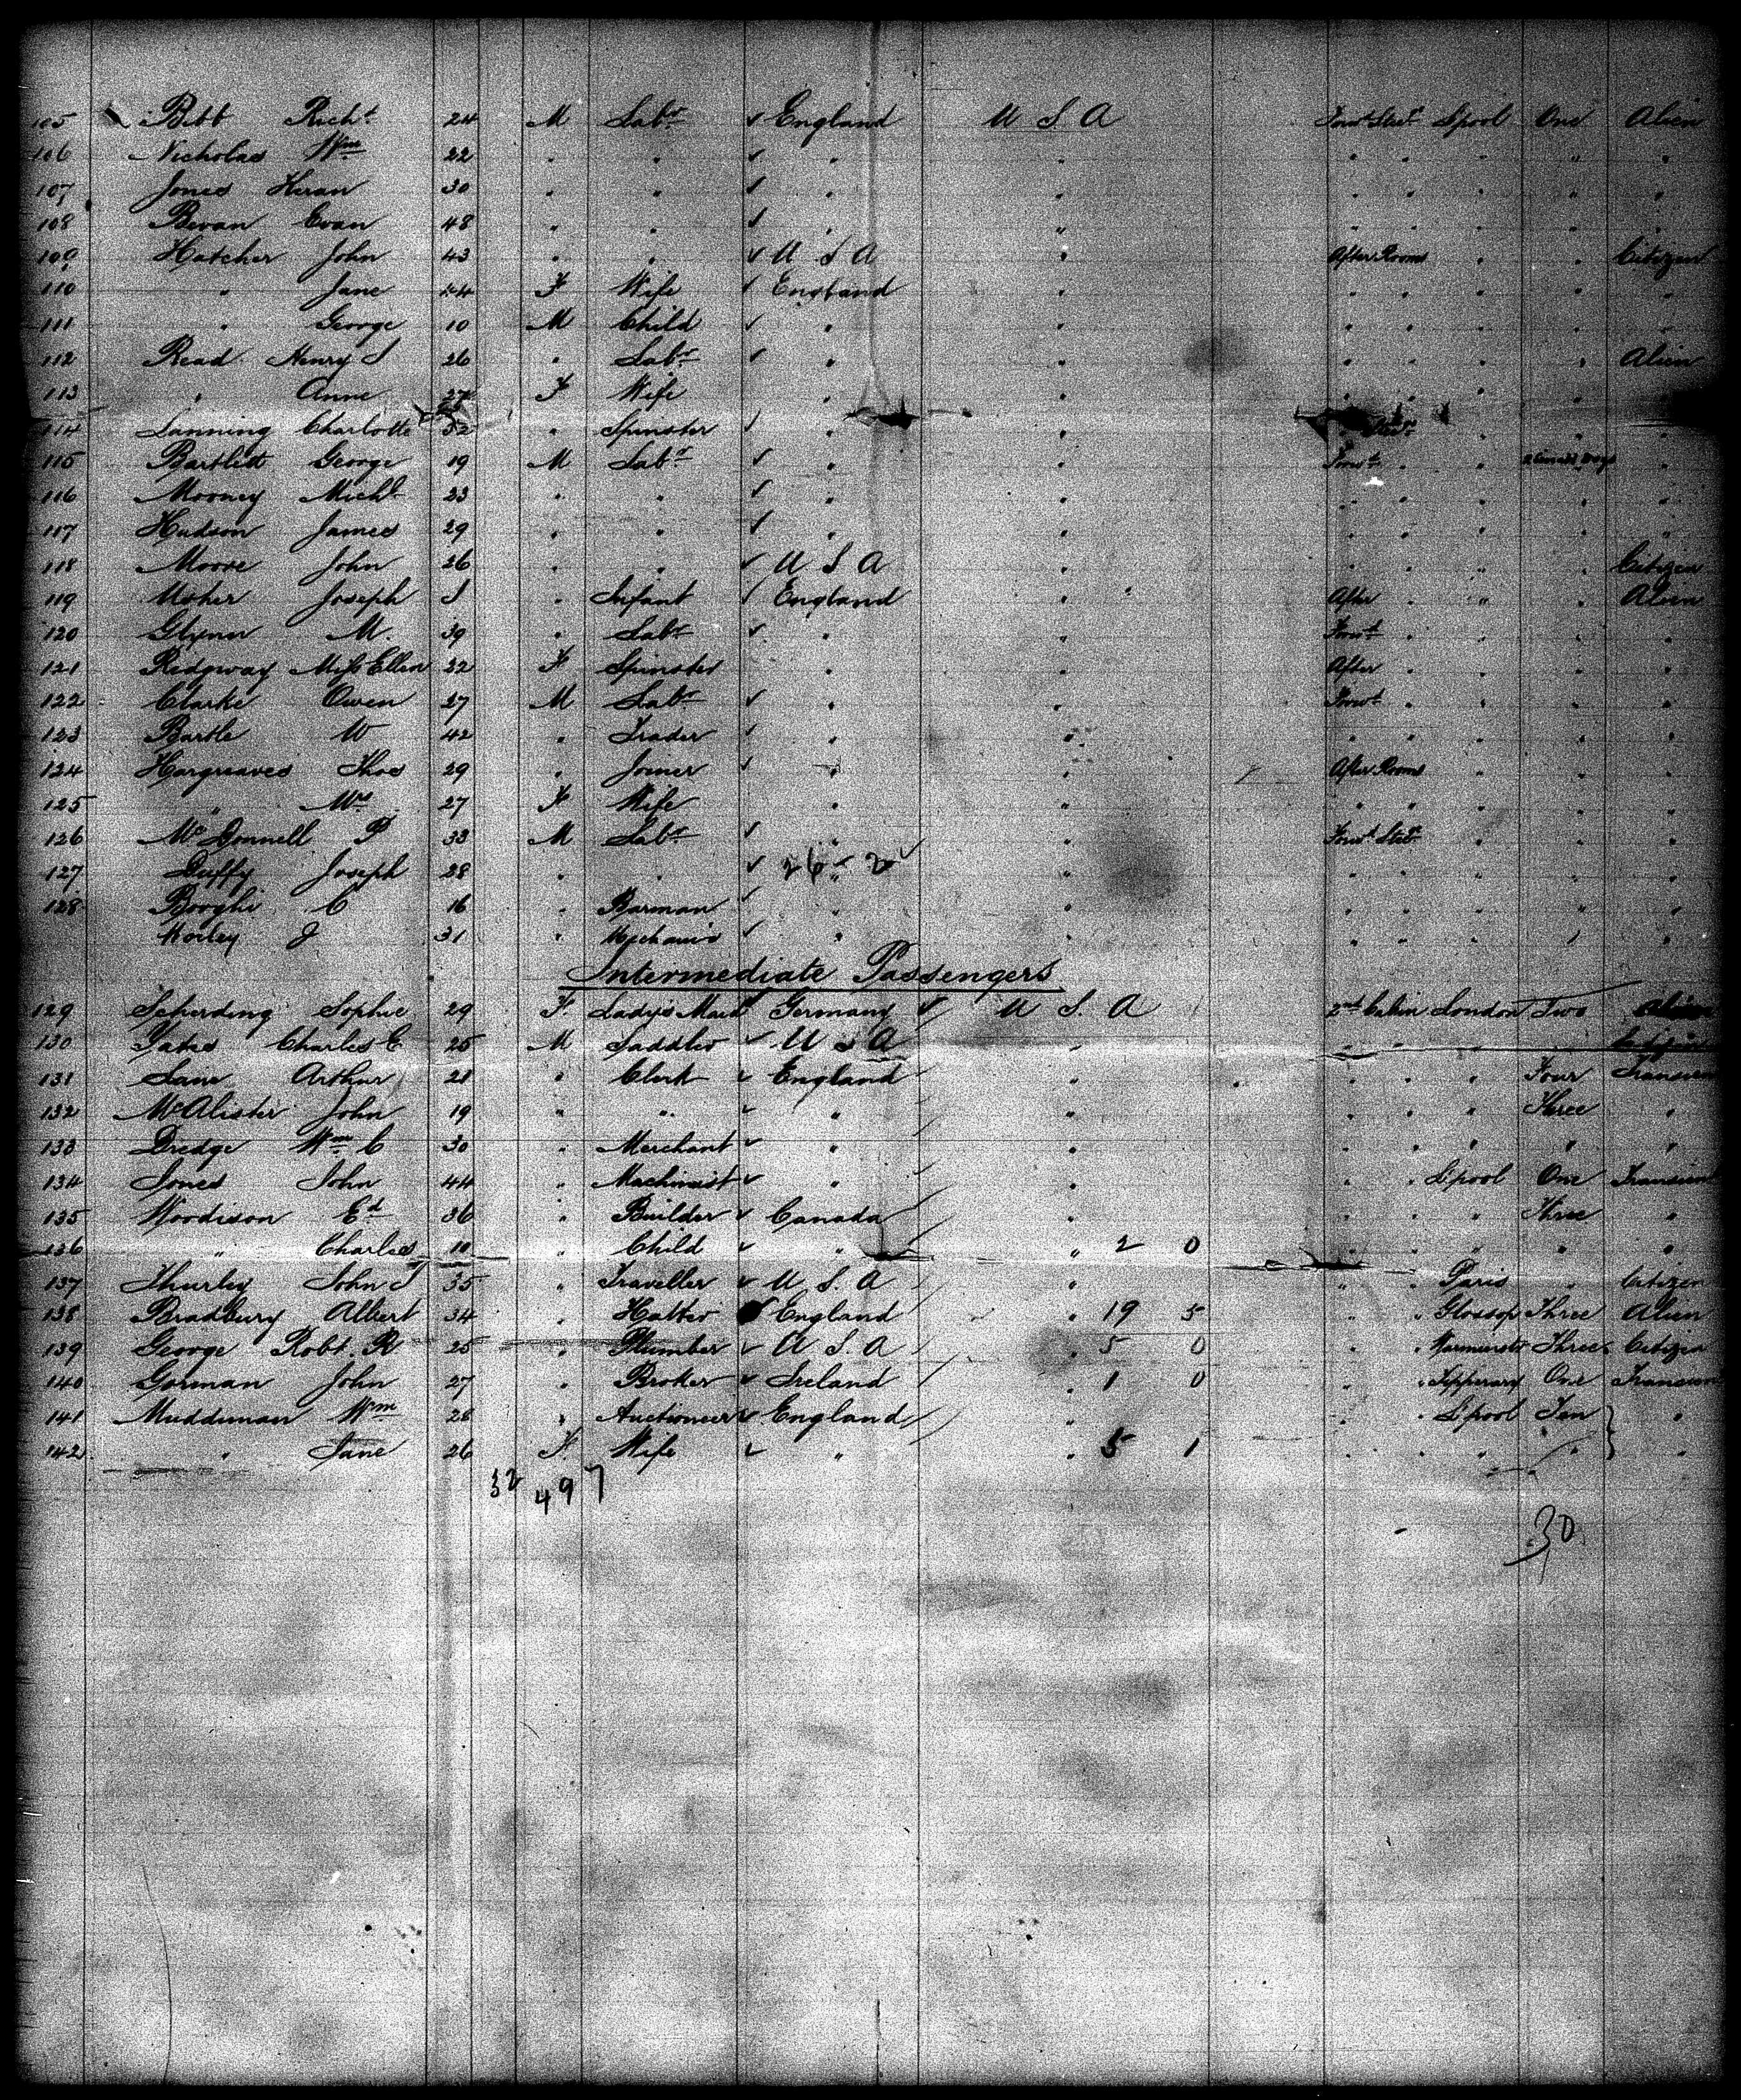 105 Bibb Richt 24 M Labr ✓ England U S A Forwd Steer L'pool One Alien
106 Nicholas Wm 22 " " ✓ " " " " " " "
107 Jones Hiran 30 " " ✓ " " " " " " "
108 Bevan Evan 48 " " ✓ " " " " " " "
109 Hatcher John 43 " " ✓ U S A " After Rooms " " Citizen
110 " Jane 44 F Wife ✓ England " " " " " "
111 " George 10 M Child ✓ " " " " " " "
112 Read Henry S 26 " Labr ✓ " " " " " " Alien
113 " Anne 27 F Wife " " " " " "
114 Lanning Charlotte 32 " Spinster ✓ " " " Steer " " "
115 Bartlett George 19 M Labr ✓ " " Forwd " " "
116 Mooney Michl 23 " " ✓ " " " " " " "
117 Hudson James 29 " " ✓ " " " " " " "
118 Moore John 26 " " ✓ U S A " " " " " Citizen
119 Moher Joseph " Infant ✓ England " After " " " Alien
120 Glynn M. 39 " Labr ✓ " " Forwd " " " "
121 Ridgway Miss Ellen 22 F Spinster " " After " " " "
122 Clarke Owen 27 M Labr ✓ " " Forwd " " " "
123 Bartle W 42 " Trader ✓ " " " " " " "
124 Hargreaves Thos 29 " Joiner ✓ " " After Rooms " " "
125 " Mrs 27 F Wife " " " " " " "
126 McDonnell P 33 M Labr ✓ " " Forwd Steer " " "
127 Duffy Joseph 28 " " ✓ 26 - 2 ✓ " " " " " "
128 Booghi C 16 " Barman ✓ " " " " " " "
Worley J 31 " Mechanic ✓ " " " " " "
Intermediate Passengers
129 Scherding Sophie 29 F. Lady's Maid ✓ Germany ✓ U S. A 2nd Cabin London Two Alien
130 Yates Charles E 25 M Saddler ✓ U S A " " " " " Citizen
131 Lain Arthur 21 " Clerk ✓ England " " " " Four Transient
132 McAlister John 19 " " ✓ " " " " " Three "
133 Dredge Wm C 30 " Merchant ✓ " " " " " "
134 Jones John 44 " Machinist ✓ " " " " L'pool One Transient
135 Woodison Ed 36 " Builder ✓ Canada " " " " Three "
136 " Charles 10 " Child ✓ " " 2 0 " " " " "
137 Thurley John S 35 " Traveller ✓ U. S. A " " " Paris " Citizen
138 Bradbury Albert 34 " Hatter England " 19 5 " Glossop Three Alien
139 George Robt. R 25 " Plumber ✓ U S. A " 5 0 " Warminster Three Citizen
140 Gorman John 27 " Broker ✓ Ireland " 1 0 " " Tipperary One Transient
141 Muddiman Wm 28 " Auctioneer ✓ England " " " L'pool Ten "
142 " Jane 26 F. Wife ✓ " " 5 1 " " " " "
32 497
30